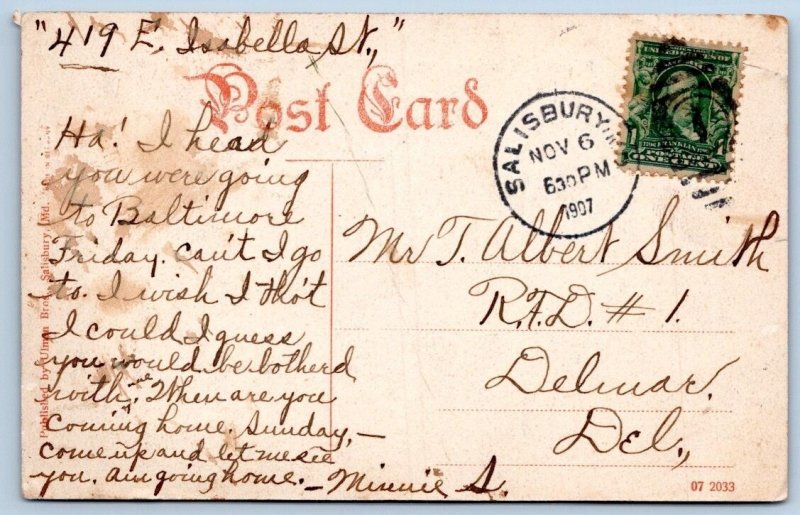 "419 E. Isabella St.,"
Post Card
Ha! I head
you were going
to Baltimore
Friday. can't I go
to. I wish I tho't
I could I guess
you would be botherd
with me. When are you
coming home. Sunday,—
come up and let me see
you. am going home. —Minnie S.
SALISBURY
NOV 6
630 PM
1907
FRANKLIN
1 ONE CENT 1
Mr T. Albert Smith
R.F.D. # 1.
Delmar.
Del.,
Published by Ulman Bros., Salisbury, Md.
07 2033